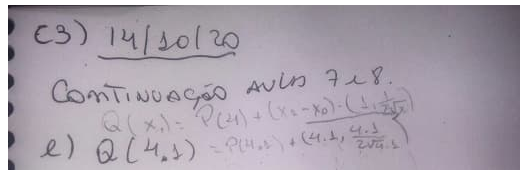 C3) 14/10/20
CONTINUAÇÃO AULAS 7 e 8.
Q(x₁) = P(21) + (x₂ - x₀) · (1, 1/2√x)
e) Q(4.1) = P(4.1) + (4.1, 4.1/2√4.1)